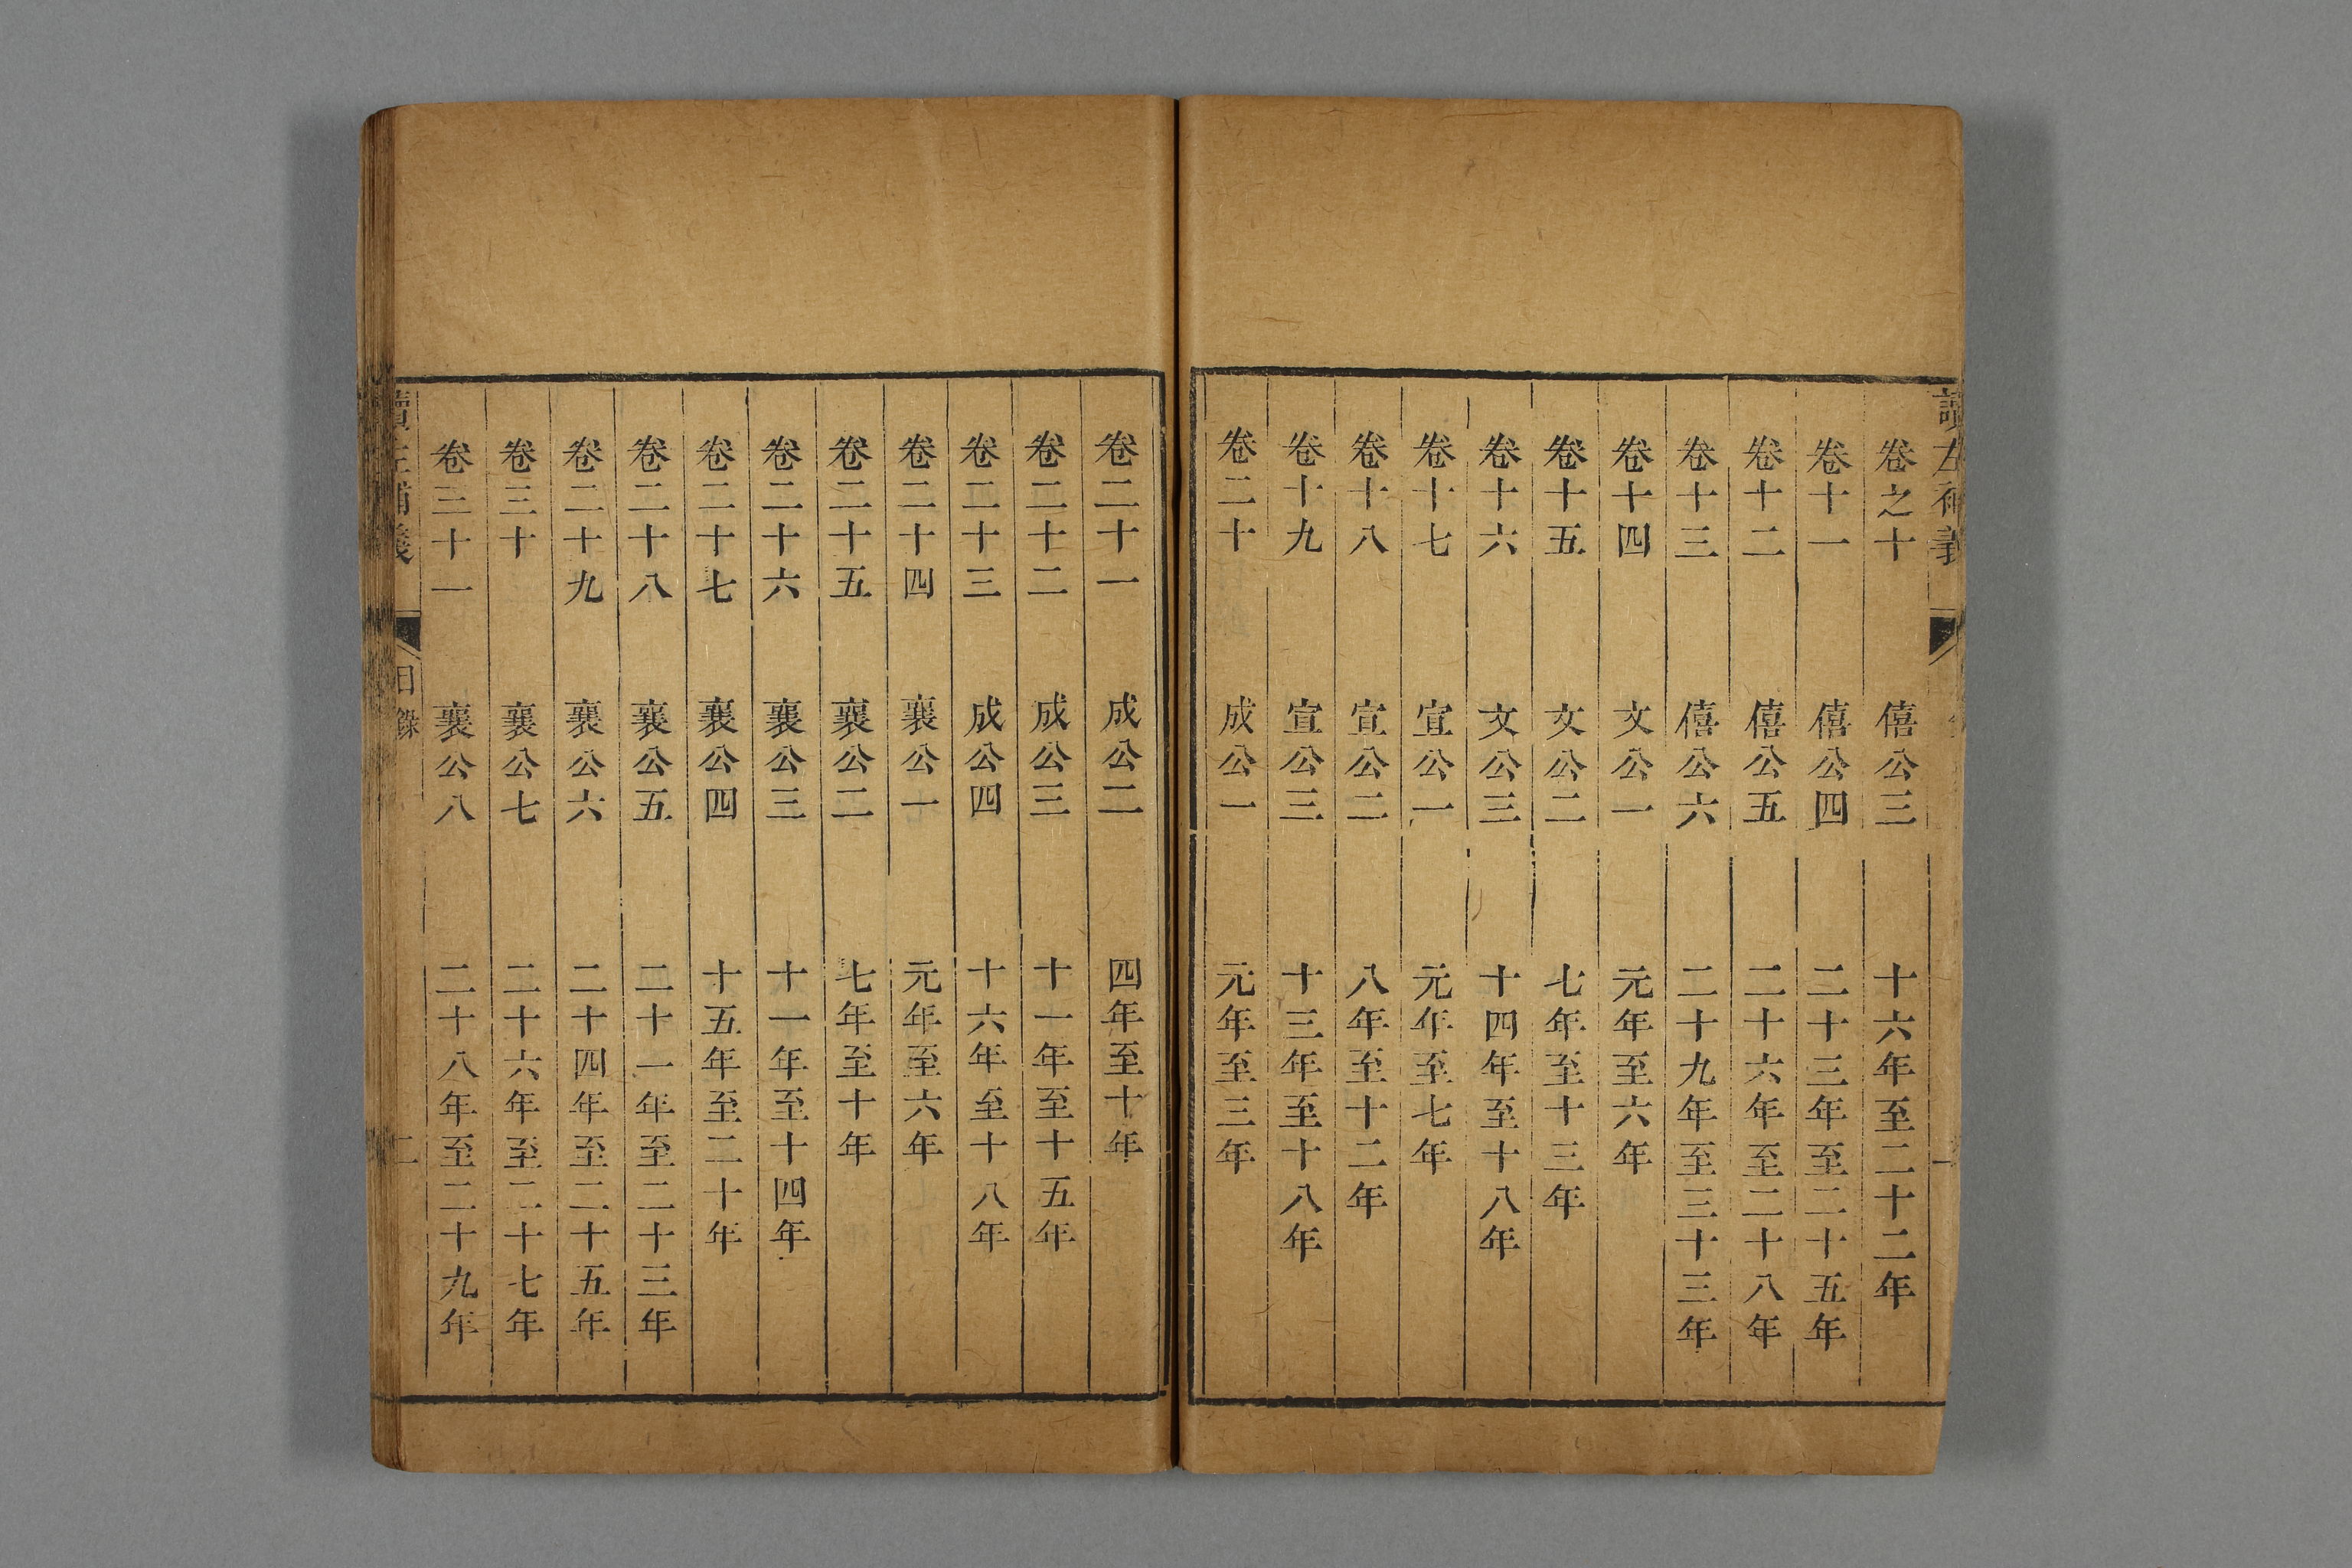 讀左補義
卷之十 僖公三 十六年至二十二年
卷十一 僖公四 二十三年至二十五年
卷十二 僖公五 二十六年至二十八年
卷十三 僖公六 二十九年至三十三年
卷十四 文公一 元年至六年
卷十五 文公二 七年至十三年
卷十六 文公三 十四年至十八年
卷十七 宣公一 元年至七年
卷十八 宣公二 八年至十二年
卷十九 宣公三 十三年至十八年
卷二十 成公一 元年至三年
卷二十一 成公二 四年至十年
卷二十二 成公三 十一年至十五年
卷二十三 成公四 十六年至十八年
卷二十四 襄公一 元年至六年
卷二十五 襄公二 七年至十年
卷二十六 襄公三 十一年至十四年
卷二十七 襄公四 十五年至二十年
卷二十八 襄公五 二十一年至二十三年
卷二十九 襄公六 二十四年至二十五年
卷三十 襄公七 二十六年至二十七年
卷三十一 襄公八 二十八年至二十九年
讀左補義 目錄 二